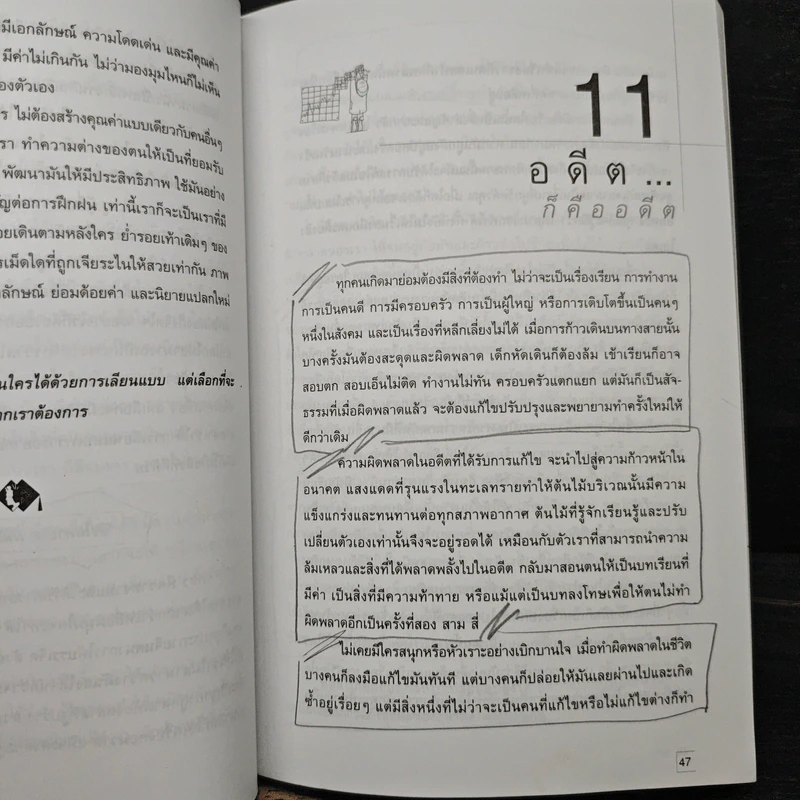 มีเอกลักษณ์ ความโดดเด่น และมีคุณค่า
มีค่าไม่เกินกัน ไม่ว่ามองมุมไหนก็ไม่เห็น
องตัวเอง
ร ไม่ต้องสร้างคุณค่าแบบเดียวกับคนอื่นๆ
รา ทำความต่างของตนให้เป็นที่ยอมรับ
พัฒนามันให้มีประสิทธิภาพ ใช้มันอย่าง
ญต่อการฝึกฝน เท่านี้เราก็จะเป็นเราที่มี
อยเดินตามหลังใคร ย่ำรอยเท้าเดิมๆ ของ
รเม็ดใดที่ถูกเจียระไนให้สวยเท่ากัน ภาพ
ลักษณ์ ย่อมด้อยค่า และนิยายแปลกใหม่
นใครได้ด้วยการเลียนแบบ แต่เลือกที่จะ
ากเราต้องการ
11
อดีต...
ก็คืออดีต
ทุกคนเกิดมาย่อมต้องมีสิ่งที่ต้องทำ ไม่ว่าจะเป็นเรื่องเรียน การทำงาน
การเป็นคนดี การมีครอบครัว การเป็นผู้ใหญ่ หรือการเติบโตขึ้นเป็นคนๆ
หนึ่งในสังคม และเป็นเรื่องที่หลีกเลี่ยงไม่ได้ เมื่อการก้าวเดินบนทางสายนั้น
บางครั้งมันต้องสะดุดและผิดพลาด เด็กหัดเดินก็ต้องล้ม เข้าเรียนก็อาจ
สอบตก สอบเอ็นไม่ติด ทำงานไม่ทัน ครอบครัวแตกแยก แต่มันก็เป็นสัจ-
ธรรมที่เมื่อผิดพลาดแล้ว จะต้องแก้ไขปรับปรุงและพยายามทำครั้งใหม่ให้
ดีกว่าเดิม
ความผิดพลาดในอดีตที่ได้รับการแก้ไข จะนำไปสู่ความก้าวหน้าใน
อนาคต แสงแดดที่รุนแรงในทะเลทรายทำให้ต้นไม้บริเวณนั้นมีความ
แข็งแกร่งและทนทานต่อทุกสภาพอากาศ ต้นไม้ที่รู้จักเรียนรู้และปรับ
เปลี่ยนตัวเองเท่านั้นจึงจะอยู่รอดได้ เหมือนกับตัวเราที่สามารถนำความ
ล้มเหลวและสิ่งที่ได้พลาดพลั้งไปในอดีต กลับมาสอนตนให้เป็นบทเรียนที่
มีค่า เป็นสิ่งที่มีความท้าทาย หรือแม้แต่เป็นบทลงโทษเพื่อให้ตนไม่ทำ
ผิดพลาดอีกเป็นครั้งที่สอง สาม สี่
ไม่เคยมีใครสนุกหรือหัวเราะอย่างเบิกบานใจ เมื่อทำผิดพลาดในชีวิต
บางคนก็ลงมือแก้ไขมันทันที แต่บางคนก็ปล่อยให้มันเลยผ่านไปและเกิด
ซ้ำอยู่เรื่อยๆ แต่มีสิ่งหนึ่งที่ไม่ว่าจะเป็นคนที่แก้ไขหรือไม่แก้ไขต่างก็ทำ
47